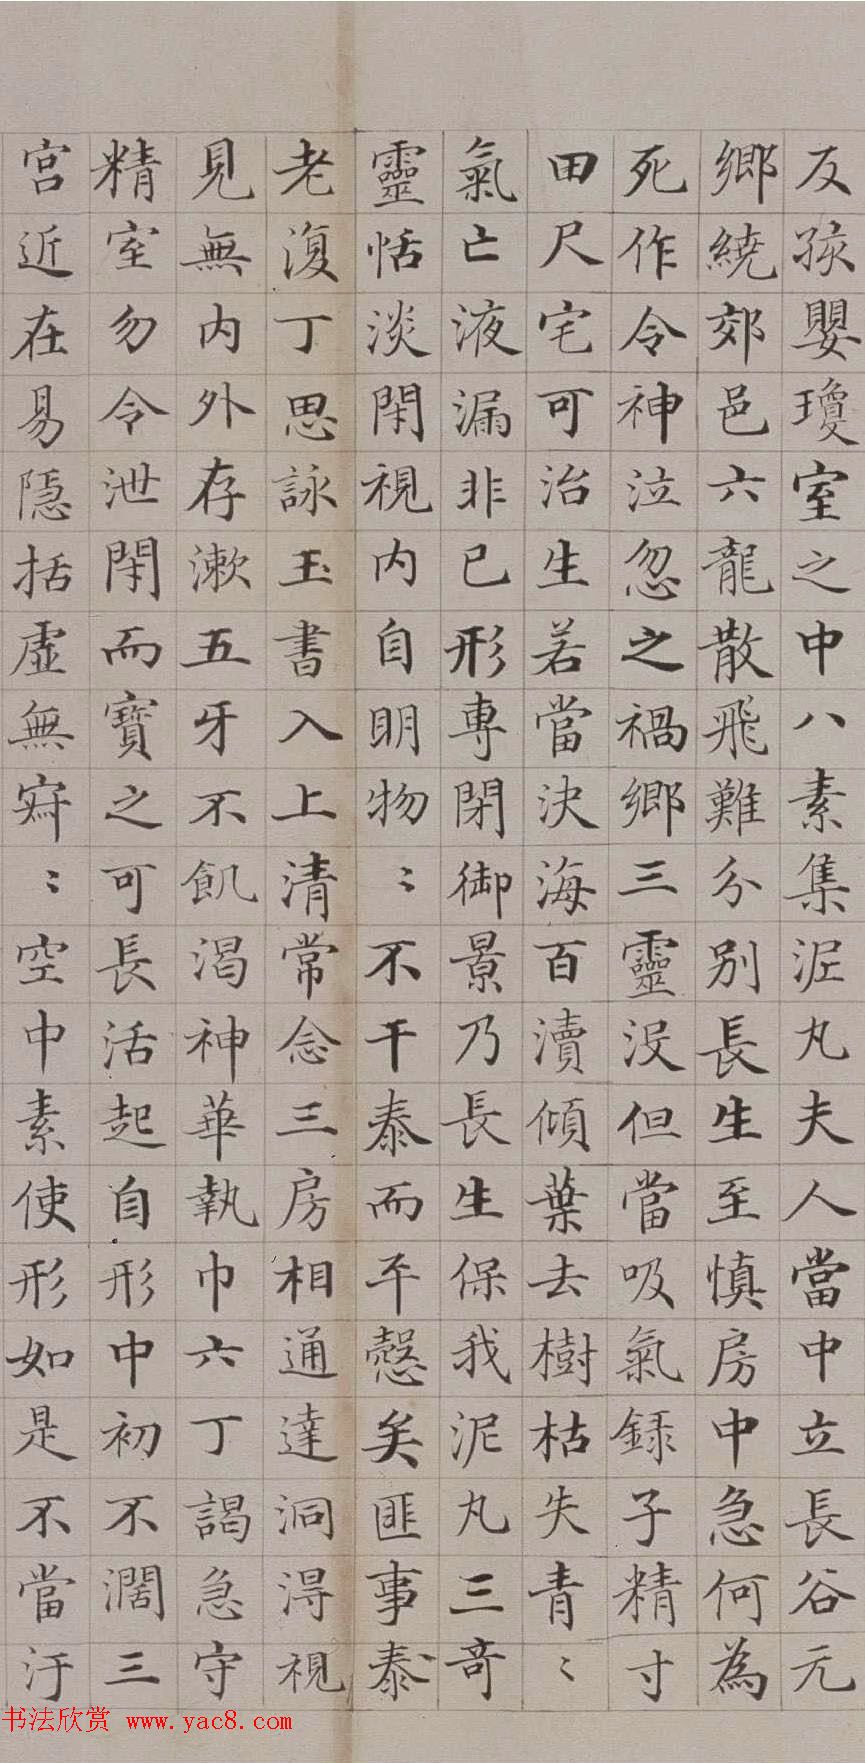 反孩嬰瓊室之中八素集泥丸夫人當中立長谷元
鄉繞郊邑六龍散飛難分別長生至慎房中急何為
死作令神泣忽之禍鄉三靈没但當吸氣録子精寸
田尺宅可治生若當決海百瀆傾葉去樹枯失青〻
氣亡液漏非已形專閉御景乃長生保我泥丸三奇
靈恬淡閑視内自明物〻不干泰而平愨矣匪事泰
老復丁思詠玉書入上清常念三房相通達洞得視
見無内外存漱五牙不飢渴神華執巾六丁謁急守
精室勿令泄閉而寶之可長活起自形中初不濶三
宫近在易隱括虚無寂〻空中素使形如是不當汙
书法欣赏 www.yac8.com